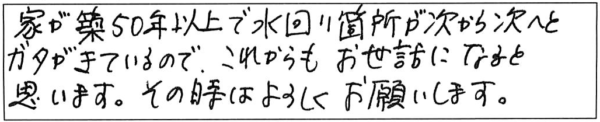 家が築50年以上で水回り箇所が次から次へと
ガタがきているので、これからも お世話になると
思います。その時はよろしく お願いします。